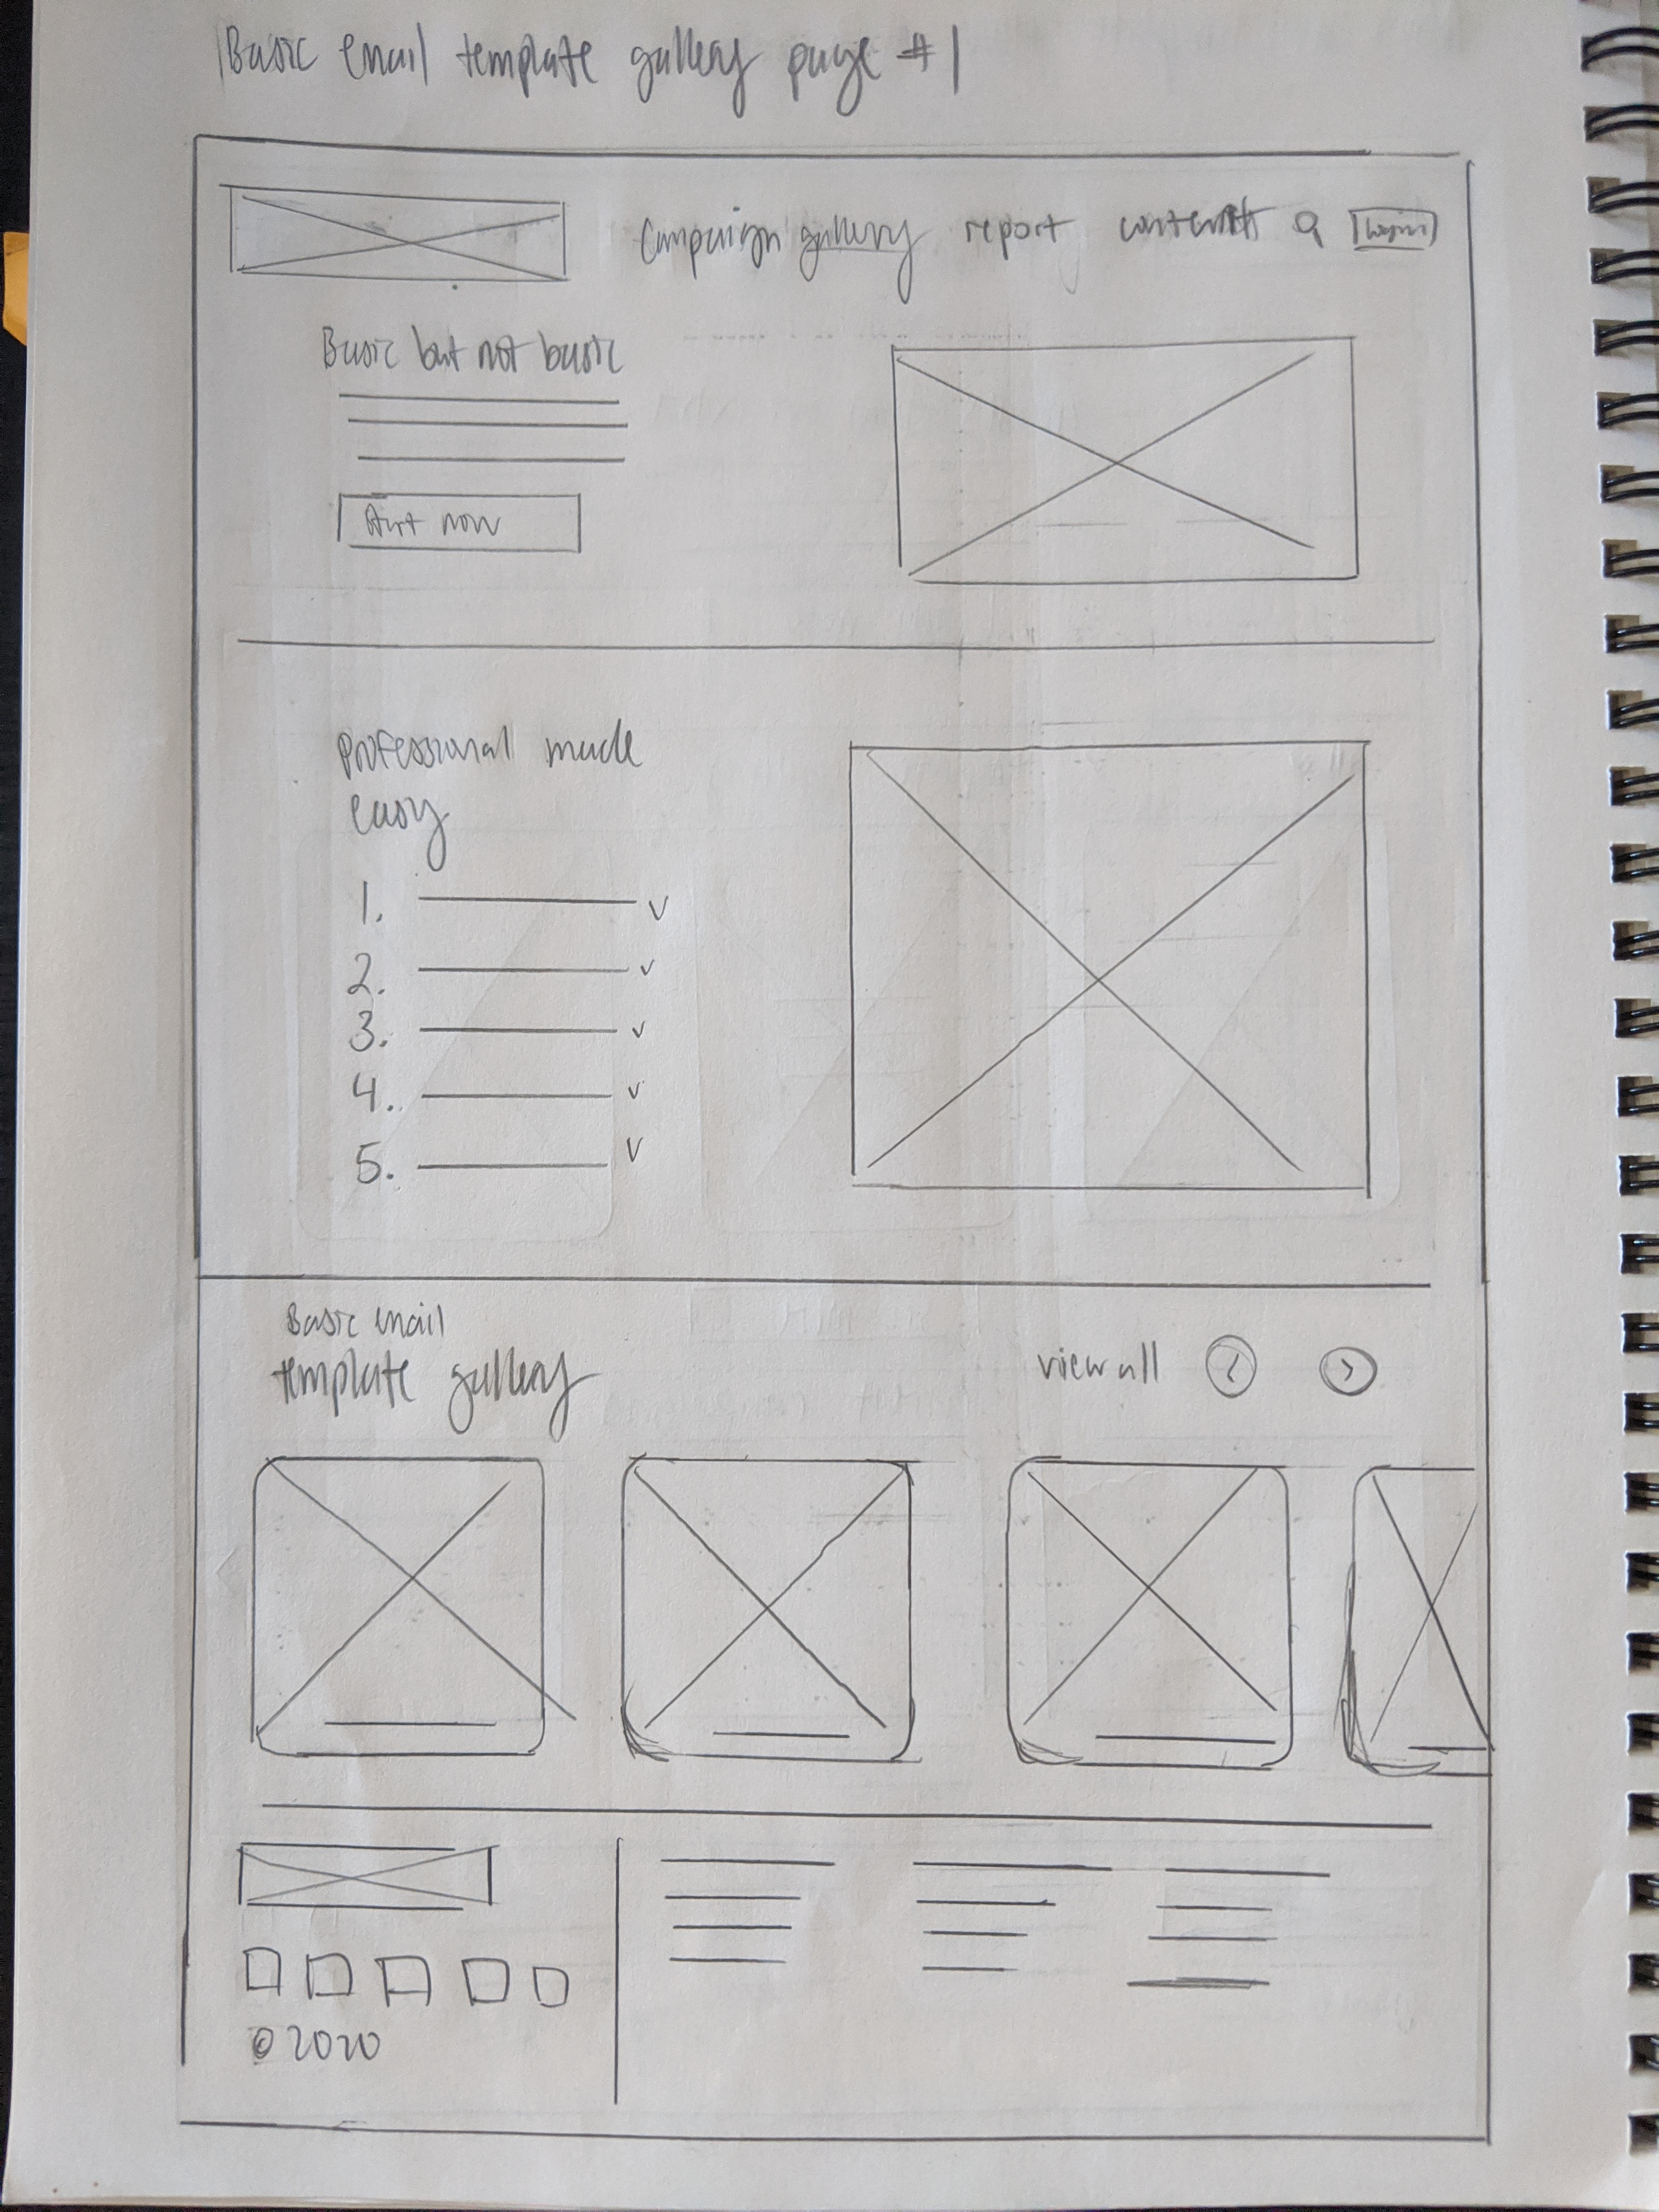 Basic email template gallery page #1
Campaign gallery report contents login
Basic but not basic
Start now
Professional made
easy
1.
2.
3.
4.
5.
Basic email
template gallery
view all < >
© 2020